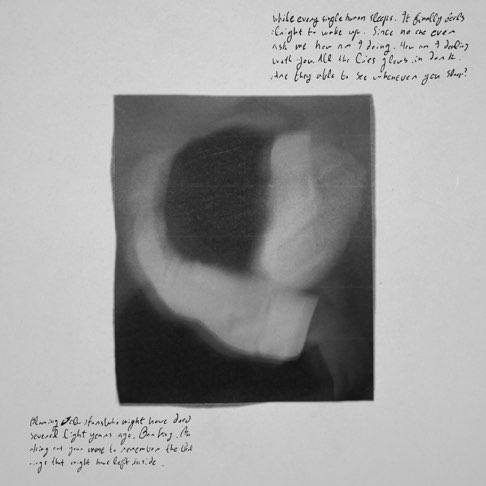 While every single human sleeps. It finally feels
right to wake up. Since no one ever
ask me how am I doing. How am I dealing
with you. All the lies glows in dark.
Are they able to see whenever you sleep?
Blaming stars who might have died
several light years ago. Barking.
your name to remember the
ings that might have left inside.